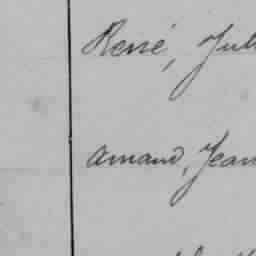 René, Jul
Amand, Jean